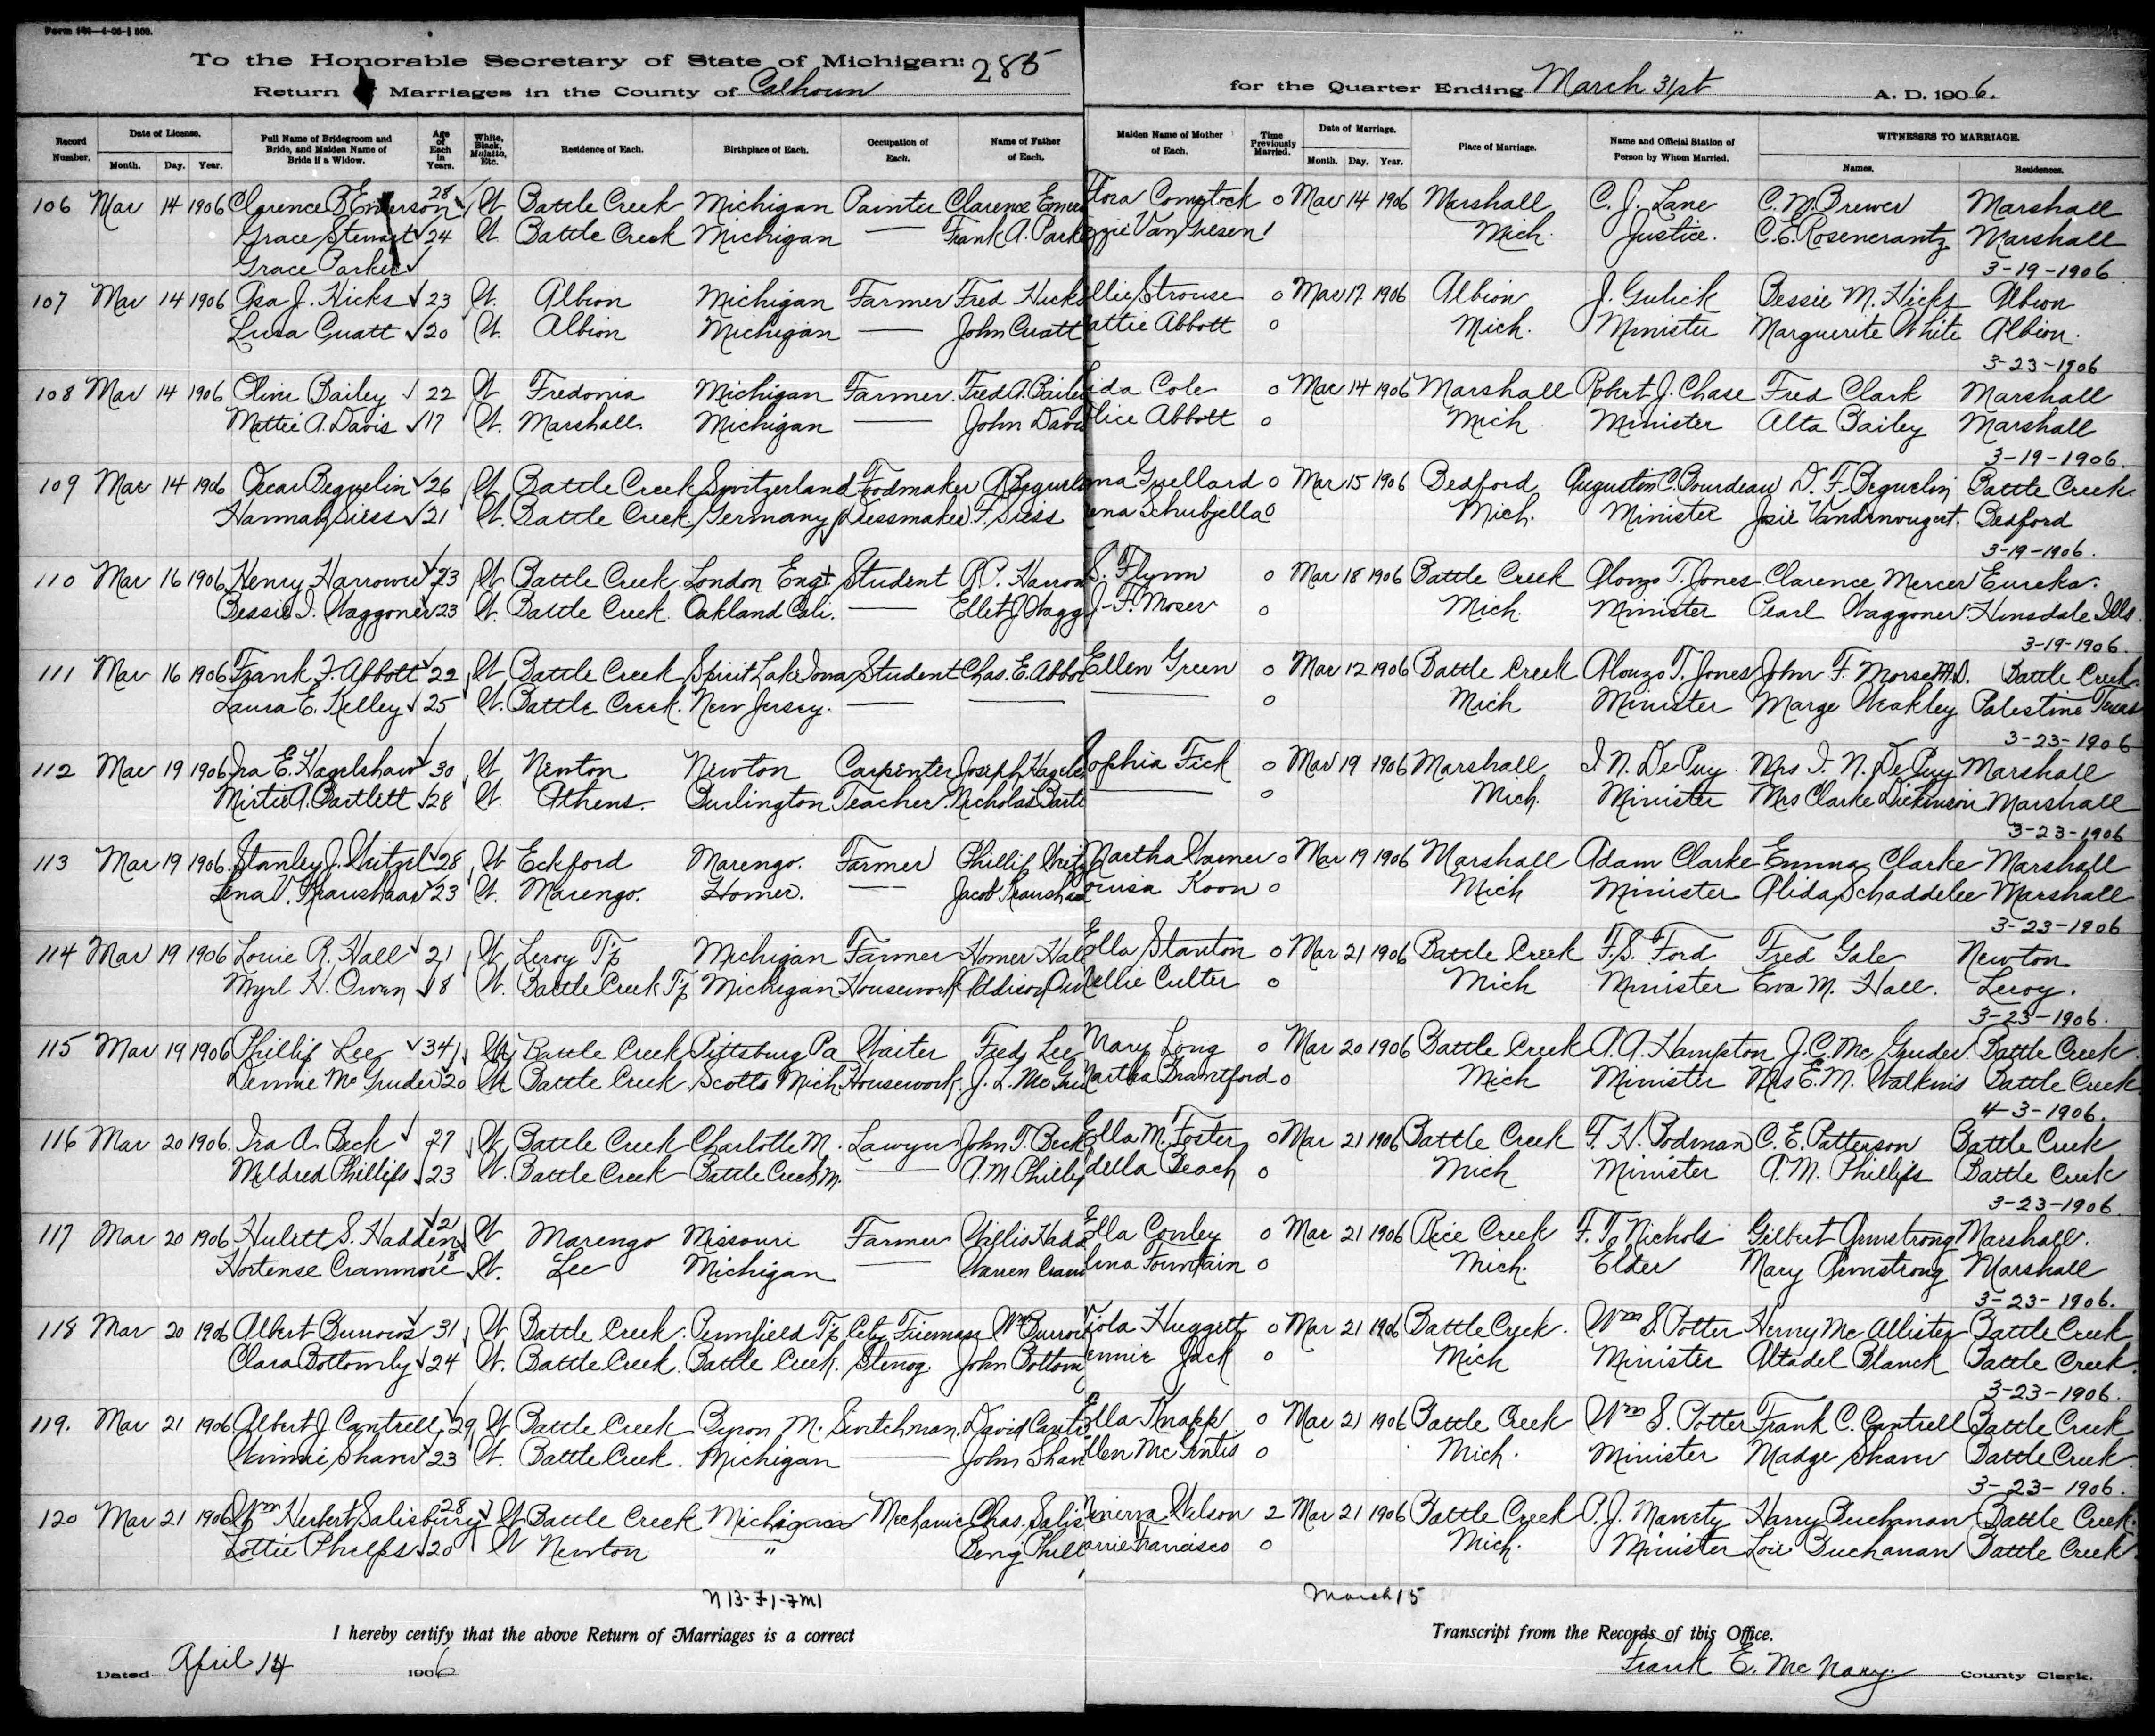 Form 101—4-05-1 500.
To the Honorable Secretary of State of Michigan: 285
Return of Marriages in the County of Calhoun
for the Quarter Ending March 31st A. D. 1906.
Record Number. Date of License. Month. Day. Year. Full Name of Bridegroom and Bride, and Maiden Name of Bride if a Widow. Age of Each in Years. White, Black, Mulatto, Etc. Residence of Each. Birthplace of Each. Occupation of Each. Name of Father of Each. Maiden Name of Mother of Each. Time Previously Married. Date of Marriage. Month. Day. Year. Place of Marriage. Name and Official Station of Person by Whom Married. WITNESSES TO MARRIAGE. Names. Residences.
106 Mar 14 1906 Clarence B. Emerson 28 W Battle Creek Michigan Painter Clarence Emer Flora Comstock 0 Mar 14 1906 Marshall C. J. Lane C. M. Brewer Marshall
Grace Stewart 24 W Battle Creek Michigan — Frank A. Park zzie Van Giesen 1 Mich. Justice. C. E. Rosencrantz Marshall
Grace Parker 3-19-1906
107 Mar 14 1906 Asa J. Hicks 23 W. Albion Michigan Farmer Fred Hicks llie Strouse 0 Mar 17 1906 Albion J. Gulick Bessie M. Hicks Albion
Lura Cuatt 20 W. Albion Michigan — John Cuatt attie Abbott 0 Mich. Minister Marguerite White Albion.
3-23-1906
108 Mar 14 1906 Oliver Bailey 22 W Fredonia Michigan Farmer. Fred A. Baile ida Cole 0 Mar 14 1906 Marshall Robert J. Chase Fred Clark Marshall
Mattie A. Davis 17 W. Marshall. Michigan — John Davis lice Abbott 0 Mich Minister Alta Bailey Marshall
3-19-1906.
109 Mar 14 1906 Oscar Beguelin 26 W Battle Creek Switzerland Foodmaker A Beguel na Guellard 0 Mar 15 1906 Bedford Augustin C. Bourdeau D. F. Beguelin Battle Creek
Hannah Siess 21 W. Battle Creek Germany Dressmaker F. Siess ena Schubjella 0 Mich. Minister Josie Bedford
3-19-1906.
110 Mar 16 1906 Henry Harrower 23 W Battle Creek London Eng. Student R. P. Harrow S. Flynn 0 Mar 18 1906 Battle Creek Alonzo T. Jones Clarence Mercer Eureka.
Bessie I. Waggoner 23 W. Battle Creek. Oakland Cali. — Ellet J Wagg J. F. Moser 0 Mich. Minister Pearl Waggoner Hinsdale Ills.
3-19-1906.
111 Mar 16 1906 Frank F. Abbott 22 W Battle Creek Spirit Lake Iowa Student Chas. E. Abbot Ellen Green 0 Mar 12 1906 Battle Creek Alonzo T. Jones John F. Morse M.D. Battle Creek
Laura E. Kelley 25 W. Battle Creek. New Jersey. — — — 0 Mich Minister Marge Weakley Palestine Texas
3-23-1906
112 Mar 19 1906 Ira E. Hagelshaw 30 W Newton Newton Carpenter Joseph Hagels ophia Fick 0 Mar 19 1906 Marshall I. N. De Puy Mrs I. N. De Puy Marshall
Mirtie A. Bartlett 28 W. Athens. Burlington Teacher. Nicholas Bartl — 0 Mich. Minister Mrs Clarke Dickinson Marshall
3-23-1906
113 Mar 19 1906 Stanley J. Weitzel 28 W Eckford Marengo. Farmer Phillip Weitz Martha Warner 0 Mar 19 1906 Marshall Adam Clarke Emma Clarke Marshall
Lena V. Kraushaar 23 W. Marengo. Homer. — Jacob Kraushaa ouisa Koon 0 Mich Minister Alida Schaddelee Marshall
3-23-1906
114 Mar 19 1906 Louie R. Hall 21 W Leroy Tp Michigan Farmer Homer Hall Ella Stanton 0 Mar 21 1906 Battle Creek F. S. Ford Fred Gale Newton
Myrl H. Owen 18 W. Battle Creek Tp Michigan Housework Addison Ow Nellie Culter 0 Mich Minister Eva M. Hall. Leroy.
3-23-1906.
115 Mar 19 1906 Phillip Lee 34 Battle Creek Pittsburg Pa Waiter Fred Lee Mary Long 0 Mar 20 1906 Battle Creek A. A. Hampton J. C. Mc Gruder Battle Creek.
Dennie Mc Gruder 20 Battle Creek Scotts Mich Housework J. L. Mc Gru Martha Brantford 0 Mich Minister Mrs E. M. Watkins Battle Creek
4-3-1906.
116 Mar 20 1906. Ira A. Beck 27 W Battle Creek Charlotte M. Lawyer John T. Beck Ella M. Foster 0 Mar 21 1906 Battle Creek F. H. Bodman C. E. Patterson Battle Creek
Mildred Phillips 23 W. Battle Creek Battle Creek M. — A. M Phillip della Beach 0 Mich Minister A. M. Phillips Battle Creek
3-23-1906.
117 Mar 20 1906. Hulett S. Hadden 21 W Marengo Missouri Farmer Willis Hadd Ella Conley 0 Mar 21 1906 Rice Creek F. T. Nichols Gilbert Armstrong Marshall.
Hortense Cranmore 18 W. Lee Michigan — Warren Cran lina Fountain 0 Mich. Elder Mary Armstrong Marshall
3-23-1906.
118 Mar 20 1906 Albert Burrows 31 W Battle Creek. Pennfield Tp City Fireman Wm Burrow Viola Huggett 0 Mar 21 1906 Battle Creek. Wm S Potter Henry Mc Allister Battle Creek
Clara Bottomly 24 W. Battle Creek. Battle Creek. Stenog. John Bottom ennie Jack 0 Mich Minister Altadel Blanck Battle Creek.
3-23-1906.
119. Mar 21 1906 Albert J. Cantrell 29 W Battle Creek Byron M. Switchman David Cantr Ella Knapp 0 Mar 21 1906 Battle Creek Wm S. Potter Frank C. Cantrell Battle Creek
Winnie Shaver 23 W. Battle Creek. Michigan — John Shav llen Mc Entis 0 Mich. Minister Madge Shaver Battle Creek.
3-23-1906.
120 Mar 21 1906 Wm Herbert Salisbury 28 W Battle Creek Michigan Mechanic Chas. Salis Minerva Wilson 2 Mar 21 1906 Battle Creek P. J. Maveety Harry Buchanan Battle Creek.
Lottie Phelps 20 W Newton " Benj Phel arrie Francisco 0 Mich. Minister Loie Buchanan Battle Creek
March 15
I hereby certify that the above Return of Marriages is a correct Transcript from the Records of this Office.
Dated April 14 1906 Frank E. McNary County Clerk.